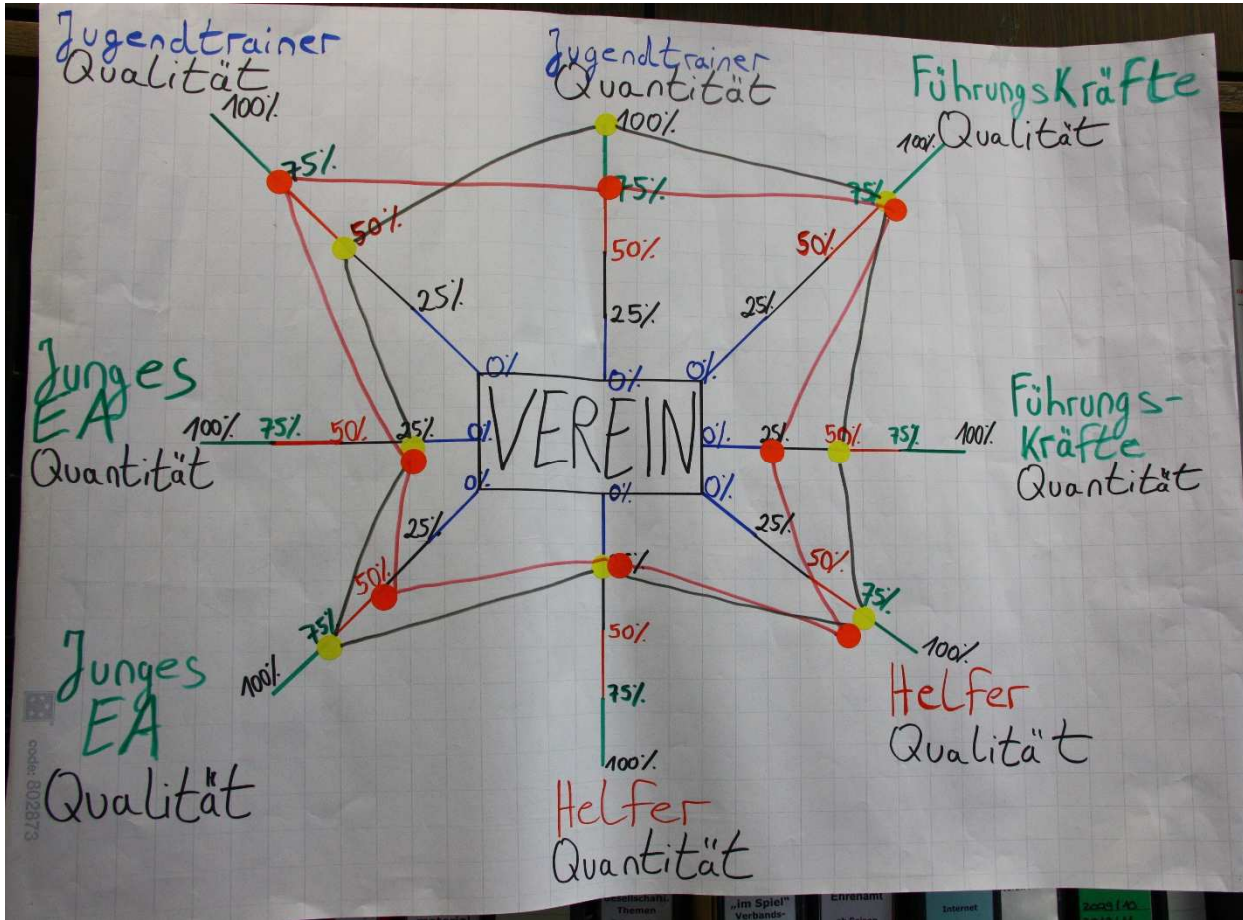 Jugendtrainer
Qualität
100%
75%
50%
25%
0%
Jugendtrainer
Quantität
100%
75%
50%
25%
0%
FührungsKräfte
Qualität
100%
75%
50%
25%
0%
Junges
EA
Quantität
100% 75% 50% 25% 0%
VEREIN
0% 25% 50% 75% 100%
Führungs-
Kräfte
Quantität
0%
25%
50%
75%
100%
Junges
EA
Qualität
0%
50%
75%
100%
Helfer
Quantität
0%
25%
50%
75%
100%
Helfer
Qualität
code: 802873
Themen
„im Spiel"
Verbands-
Ehrenamt
Internet
2009/10